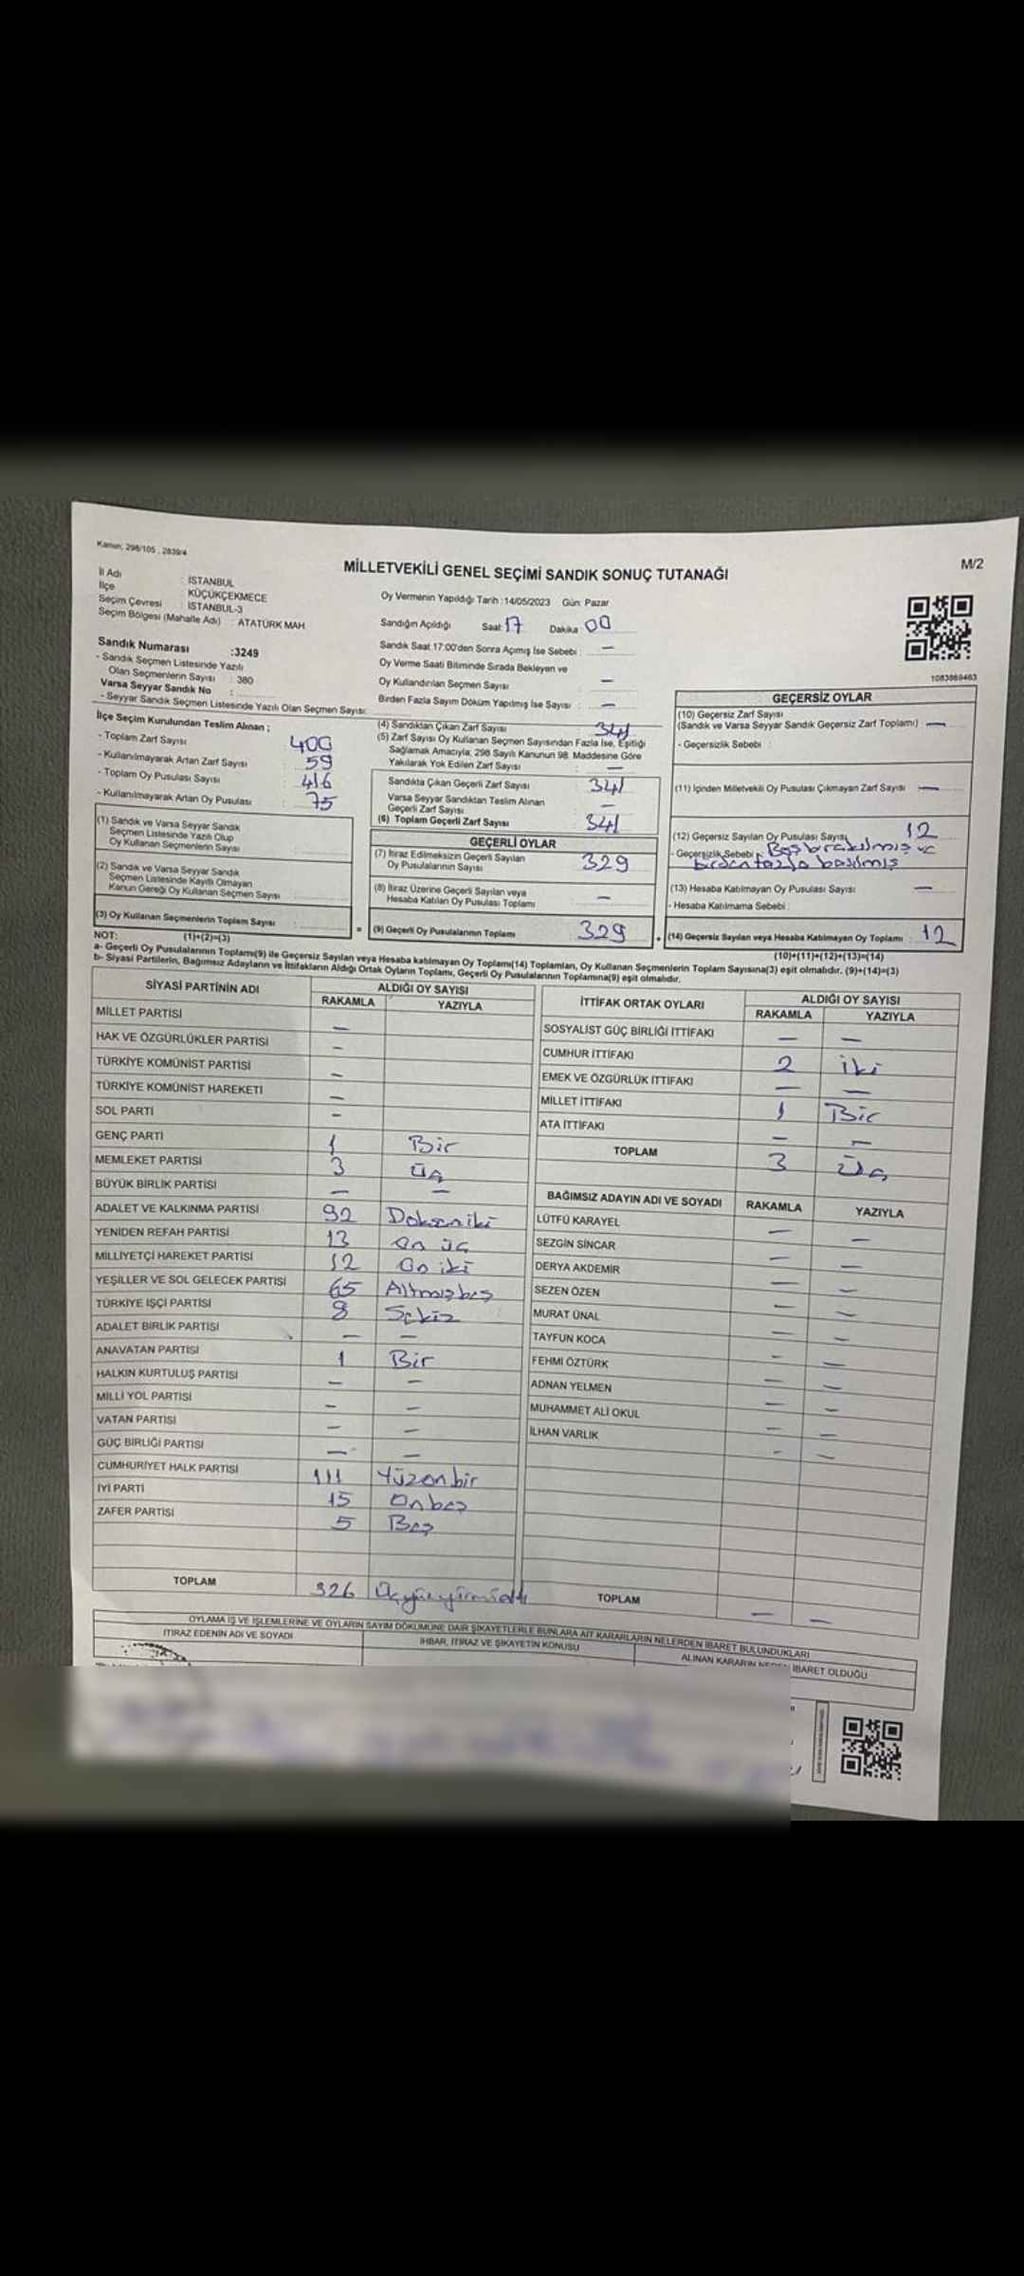 Kanun; 298/105 , 2839/4
M/2
MİLLETVEKİLİ GENEL SEÇİMİ SANDIK SONUÇ TUTANAĞI
İl Adı : İSTANBUL
İlçe : KÜÇÜKÇEKMECE
Seçim Çevresi : İSTANBUL-3
Seçim Bölgesi (Mahalle Adı) : ATATÜRK MAH
Oy Vermenin Yapıldığı Tarih :14/05/2023 Gün: Pazar
Sandığın Açıldığı Saat 17 Dakika 00
Sandık Numarası :3249
- Sandık Seçmen Listesinde Yazılı
Olan Seçmenlerin Sayısı : 380
Varsa Seyyar Sandık No :
- Seyyar Sandık Seçmen Listesinde Yazılı Olan Seçmen Sayısı:
Sandık Saat 17:00'den Sonra Açmış İse Sebebi : —
Oy Verme Saati Bitiminde Sırada Bekleyen ve
Oy Kullandırılan Seçmen Sayısı : —
Birden Fazla Sayım Döküm Yapılmış İse Sayısı : —
1083869463
İlçe Seçim Kurulundan Teslim Alınan ;
- Toplam Zarf Sayısı : 400
- Kullanılmayarak Artan Zarf Sayısı : 59
- Toplam Oy Pusulası Sayısı : 416
- Kullanılmayarak Artan Oy Pusulası : 75
(1) Sandık ve Varsa Seyyar Sandık
Seçmen Listesinde Yazılı Olup
Oy Kullanan Seçmenlerin Sayısı
(2) Sandık ve Varsa Seyyar Sandık
Seçmen Listesinde Kayıtlı Olmayan
Kanun Gereği Oy Kullanan Seçmen Sayısı
(3) Oy Kullanan Seçmenlerin Toplam Sayısı
(1)+(2)=(3)
(4) Sandıktan Çıkan Zarf Sayısı 341
(5) Zarf Sayısı Oy Kullanan Seçmen Sayısından Fazla İse, Eşitliği
Sağlamak Amacıyla; 298 Sayılı Kanunun 98. Maddesine Göre
Yakılarak Yok Edilen Zarf Sayısı : —
Sandıkta Çıkan Geçerli Zarf Sayısı 341
Varsa Seyyar Sandıktan Teslim Alınan
Geçerli Zarf Sayısı
(6) Toplam Geçerli Zarf Sayısı 341
GEÇERLİ OYLAR
(7) İtiraz Edilmeksizin Geçerli Sayılan
Oy Pusulalarının Sayısı 329
(8) İtiraz Üzerine Geçerli Sayılan veya
Hesaba Katılan Oy Pusulası Toplamı —
(9) Geçerli Oy Pusulalarının Toplamı 329
GEÇERSİZ OYLAR
(10) Geçersiz Zarf Sayısı
(Sandık ve Varsa Seyyar Sandık Geçersiz Zarf Toplamı) —
- Geçersizlik Sebebi :
(11) İçinden Milletvekili Oy Pusulası Çıkmayan Zarf Sayısı —
(12) Geçersiz Sayılan Oy Pusulası Sayısı 12
- Geçersizlik Sebebi : Boş bırakılmış ve
birden fazla basılmış
(13) Hesaba Katılmayan Oy Pusulası Sayısı —
- Hesaba Katılmama Sebebi :
(14) Geçersiz Sayılan veya Hesaba Katılmayan Oy Toplamı : 12
(10)+(11)+(12)+(13)=(14)
NOT:
a- Geçerli Oy Pusulalarının Toplamı(9) ile Geçersiz Sayılan veya Hesaba katılmayan Oy Toplamı(14) Toplamları, Oy Kullanan Seçmenlerin Toplam Sayısına(3) eşit olmalıdır. (9)+(14)=(3)
b- Siyasi Partilerin, Bağımsız Adayların ve İttifakların Aldığı Ortak Oyların Toplamı, Geçerli Oy Pusulalarının Toplamına(9) eşit olmalıdır.
SİYASİ PARTİNİN ADI ALDIĞI OY SAYISI
RAKAMLA YAZIYLA
MİLLET PARTİSİ —
HAK VE ÖZGÜRLÜKLER PARTİSİ —
TÜRKİYE KOMÜNİST PARTİSİ —
TÜRKİYE KOMÜNİST HAREKETİ —
SOL PARTİ —
GENÇ PARTİ 1 Bir
MEMLEKET PARTİSİ 3 Üç
BÜYÜK BİRLİK PARTİSİ — —
ADALET VE KALKINMA PARTİSİ 92 Doksaniki
YENİDEN REFAH PARTİSİ 13 On üç
MİLLİYETÇİ HAREKET PARTİSİ 12 On iki
YEŞİLLER VE SOL GELECEK PARTİSİ 65 Altmışbeş
TÜRKİYE İŞÇİ PARTİSİ 8 Sekiz
ADALET BİRLİK PARTİSİ — —
ANAVATAN PARTİSİ 1 Bir
HALKIN KURTULUŞ PARTİSİ — —
MİLLİ YOL PARTİSİ — —
VATAN PARTİSİ — —
GÜÇ BİRLİĞİ PARTİSİ — —
CUMHURİYET HALK PARTİSİ 111 Yüzonbir
İYİ PARTİ 15 Onbeş
ZAFER PARTİSİ 5 Beş
TOPLAM 326 Üçyüzyirmialtı
İTTİFAK ORTAK OYLARI ALDIĞI OY SAYISI
RAKAMLA YAZIYLA
SOSYALİST GÜÇ BİRLİĞİ İTTİFAKI — —
CUMHUR İTTİFAKI 2 iki
EMEK VE ÖZGÜRLÜK İTTİFAKI — —
MİLLET İTTİFAKI 1 Bir
ATA İTTİFAKI — —
TOPLAM 3 Üç
BAĞIMSIZ ADAYIN ADI VE SOYADI RAKAMLA YAZIYLA
LÜTFÜ KARAYEL — —
SEZGİN SİNCAR — —
DERYA AKDEMİR — —
SEZEN ÖZEN — —
MURAT ÜNAL — —
TAYFUN KOCA — —
FEHMİ ÖZTÜRK — —
ADNAN YELMEN — —
MUHAMMET ALİ OKUL — —
İLHAN VARLIK — —
TOPLAM — —
OYLAMA İŞ VE İŞLEMLERİNE VE OYLARIN SAYIM DÖKÜMÜNE DAİR ŞİKAYETLERLE BUNLARA AİT KARARLARIN NELERDEN İBARET BULUNDUKLARI
İTİRAZ EDENİN ADI VE SOYADI İHBAR, İTİRAZ VE ŞİKAYETİN KONUSU ALINAN KARARIN İBARET OLDUĞU